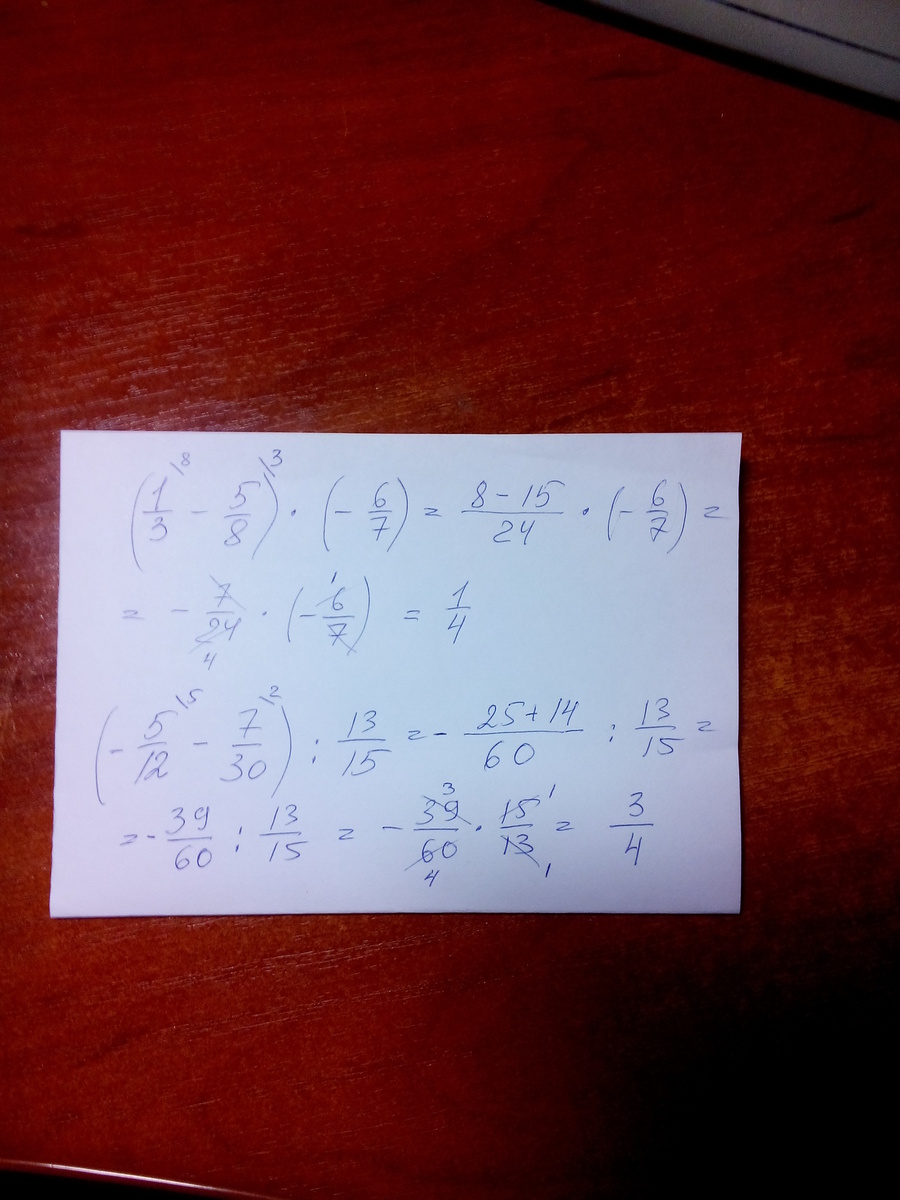 (1/3 \8 - 5/8 \3) · (- 6/7) = (8 - 15)/24 · (- 6/7) =
= - 7/24 4 · (- 6/7 1) = 1/4
(- 5/12 \5 - 7/30 \2) : 13/15 = - (25 + 14)/60 : 13/15 =
= - 39/60 : 13/15 = - 39/60 3 4 · 15/13 1 1 = 3/4